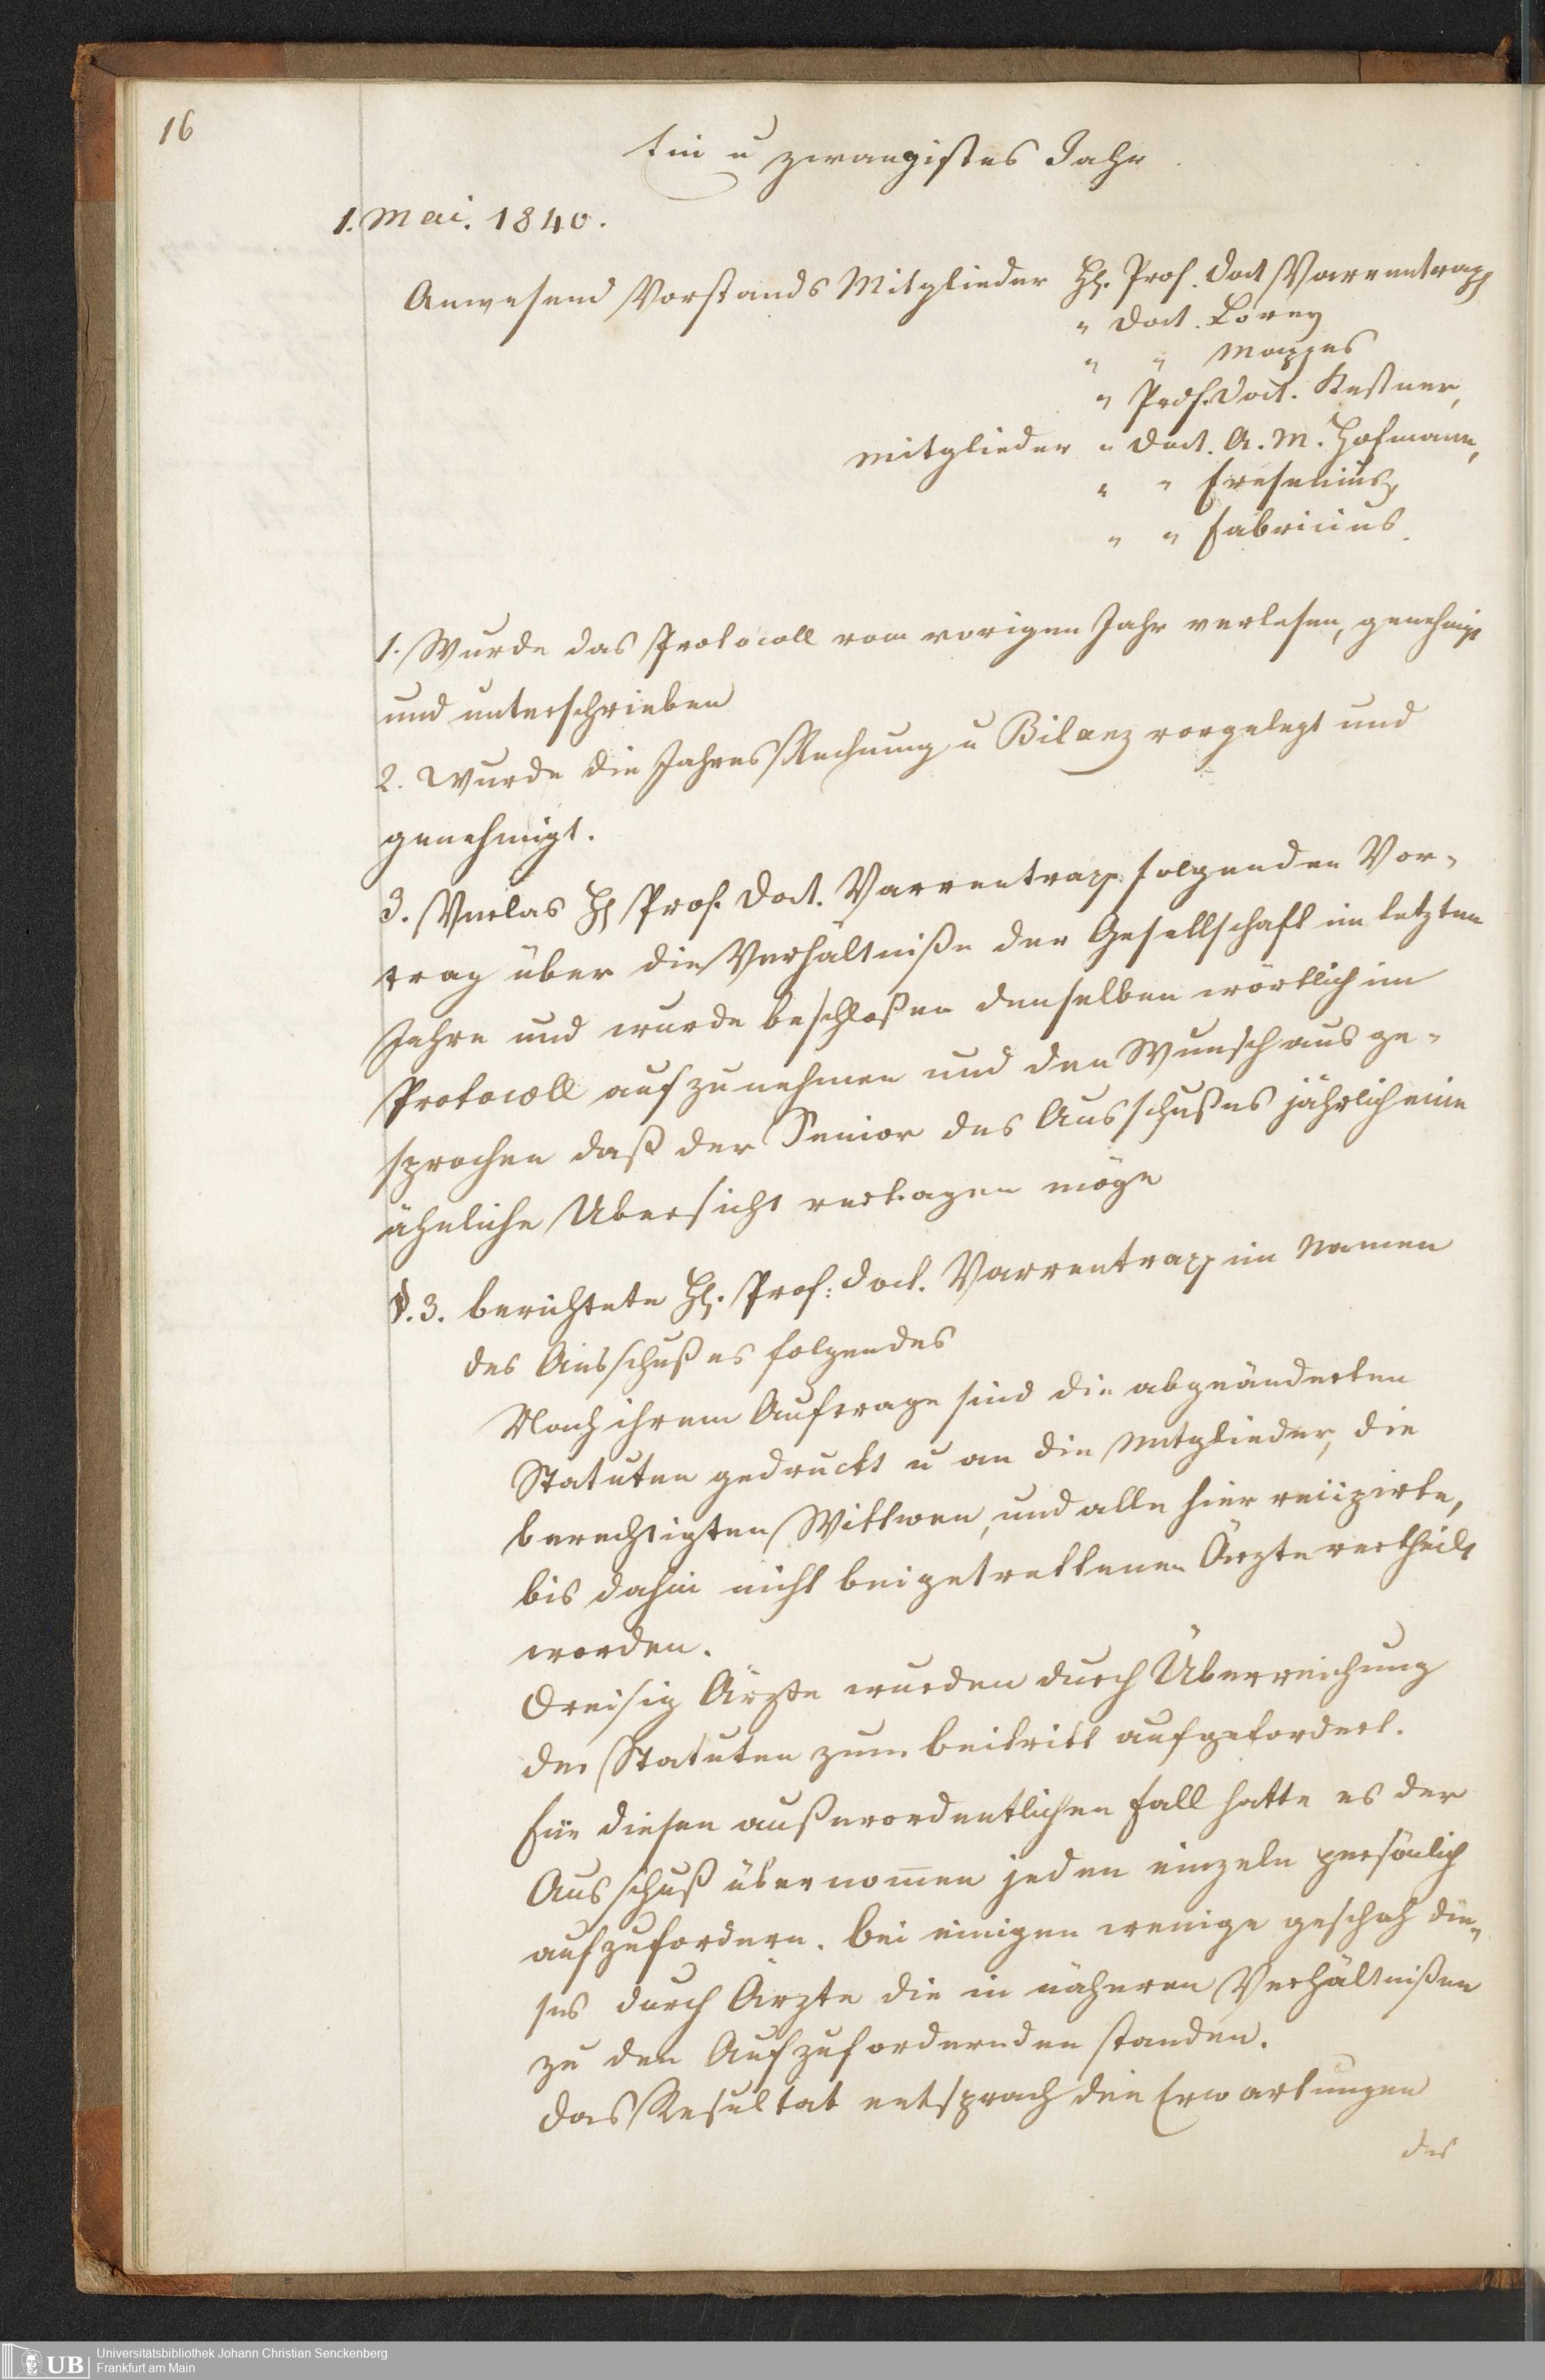 16
Ein u zwanzigstes Jahr
1. Mai. 1840.
Anwesend Vorstands Mitglieder H. Prof. Doct Varrentrapp
" Doct. Lorey
" " Mappes
" Prof. Doct. Kestner,
Mitglieder " Doct. A. M. Hofmann,
" " Fresenius,
" " Fabricius.
1. Wurde das Protocoll vom vorigen Jahr verlesen, genehmigt
und unterschrieben
2. Wurde die Jahres Rechnung u Bilanz vorgelegt und
genehmigt.
3. Verlas H Prof. Doct. Varrentrapp folgenden Vor-
trag über die Verhältniße der Gesellschaft im letzten
Jahre und wurde beschloßen denselben wörtlich im
Protocoll aufzunehmen und den Wunsch ausge-
sprochen daß der Senior des Ausschußes jährlich eine
ähnliche Übersicht vortragen möge
§. 3. berichtete H. Prof: Doct. Varrentrapp im Namen
des Ausschußes folgendes
Nach ihrem Auftrage sind die abgeänderten
Statuten gedruckt u an die Mitglieder, die
berechtigten Wittwen, und alle hier recipirte,
bis dahin nicht beigetrettenen Ärzte vertheilt
worden.
Dreisig Ärzte wurden durch Überreichung
der Statuten zum beitritt aufgefordert.
für diesen außerordentlichen Fall hatte es der
Ausschuß übernom̅en jeden einzeln persönlich
aufzufordern. bei einigen wenige geschah die-
ses durch Ärzte die in näheren Verhältnißen
zu den Aufzufordernden standen.
Das Resultat entsprach den Erwartungen
des
Universitätsbibliothek Johann Christian Senckenberg
Frankfurt am Main
UB